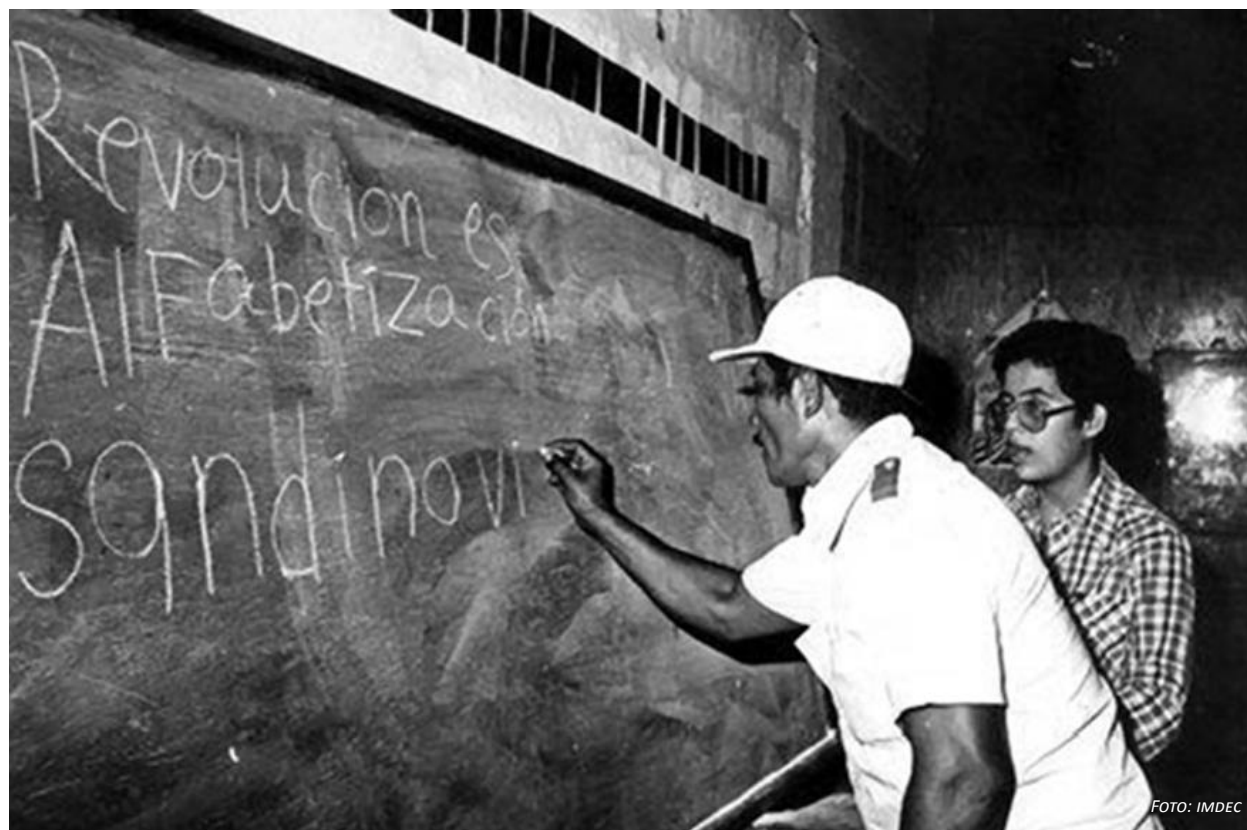 Revolucion es
AlFabetización
sandinovi
FOTO: IMDEC